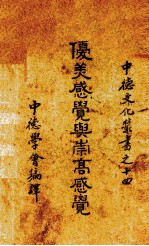 中德文化叢書之十四
優美感覺與崇高感覺
中德學會編譯